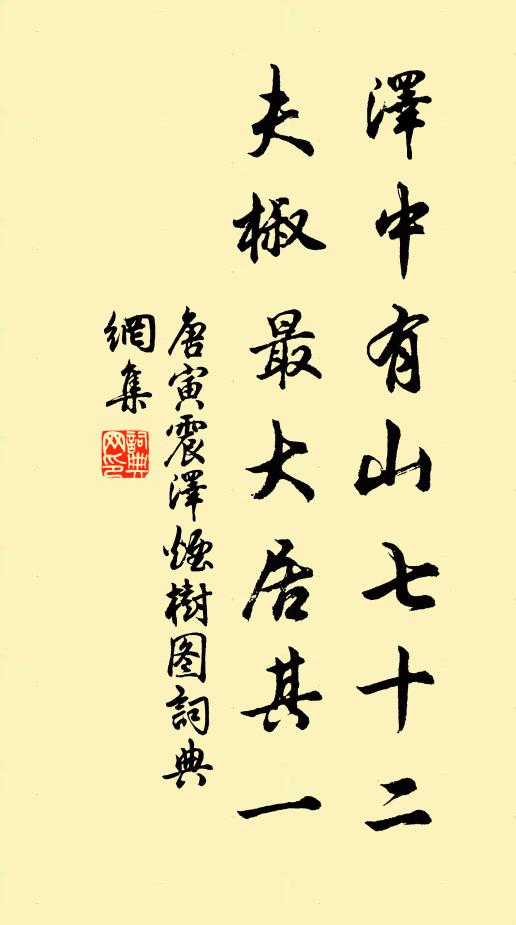 澤中有山七十二
夫椒最大居其一
唐寅震澤煙樹图詞典
網集
詞典
网印